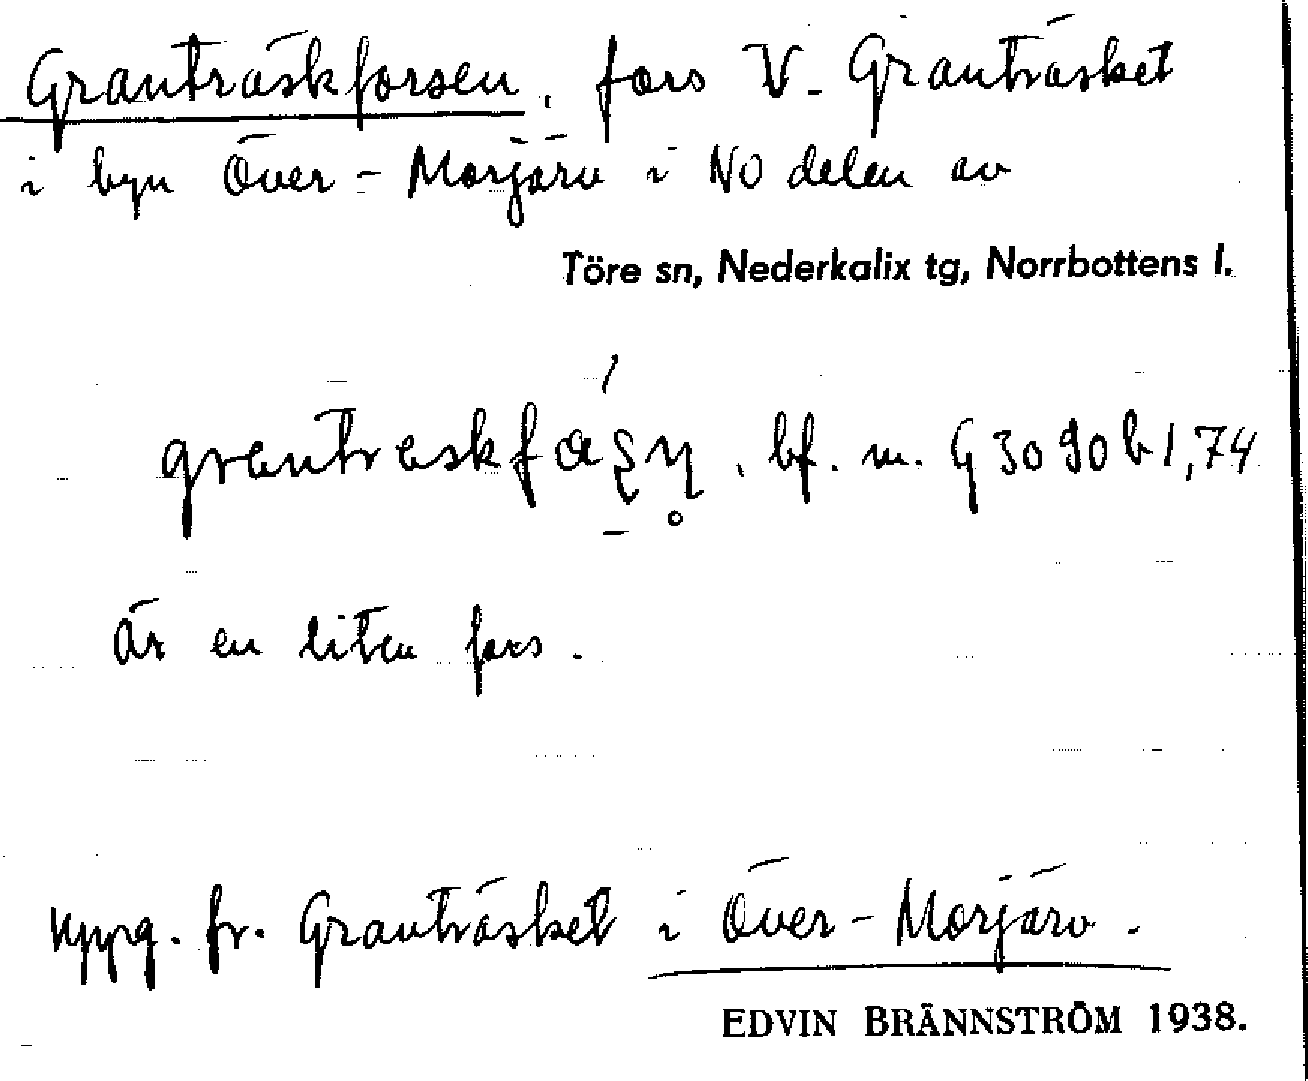 Granträskforsen, fors V. Granträsket
i byn Över-Morjärv i NO delen av
Töre sn, Nederkalix tg, Norrbottens l.
bf. m. G 3090 b 1,74
Är en liten fors.
Uppg. fr. Granträsket i Över-Morjärv.
EDVIN BRÄNNSTRÖM 1938.